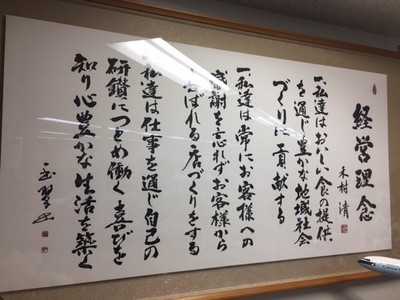 経営理念
木村 清
一、私達はおいしい食の提供
を通じ豊かな地域社会
づくりに貢献する
一、私達は常にお客様への
感謝を忘れずお客様から
選ばれる店づくりをする
一、私達は仕事を通じ自己の
研鑽につとめ働く喜びを
知り心豊かな生活を築く